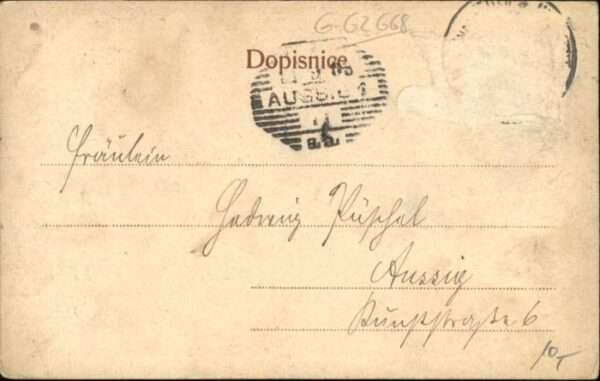 G-G2 G68
Dopisnice
05
AUSSIG 1
Fräulein
Hedwig Püschel
Aussig
Kunststraße 6
10,-